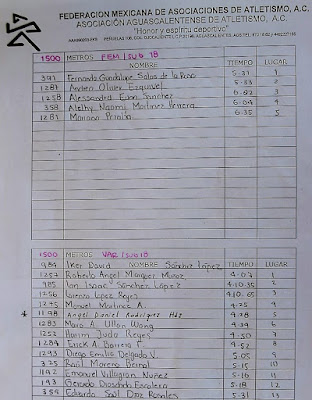 FEDERACION MEXICANA DE ASOCIACIONES DE ATLETISMO, A.C.
ASOCIACIÓN AGUASCALENTENSE DE ATLETISMO, A.C.
"Honor y espíritu deportivo"
1500 METROS FEM/SUB 18
NOMBRE TIEMPO LUGAR
391 Fernanda Guadalupe Salas de la Rosa 5-21 1
1287 Evelyn Oliver Ezquivel 5-53 2
1258 Alessandra Sánchez 3
358 Naomi Martínez Herrera 6-04 4
1281 Peralta 6-35 5
1500 METROS VAR/SUB 18
NOMBRE TIEMPO LUGAR
984 Iker David Sánchez López
1257 Roberto Angel Marquez Muñoz 4-07 1
985 Ian Isaac Sánchez López 4-10.35 2
1256 Lorenzo López Reyes 4-10.65 3
1245 Manuel Martínez A. 4-25 4
1198 Angel Daniel Rodríguez Hdz 4-28 5
1283 Marco A. Ullan Wong 4-39 6
1252 Jude Reyes 4-50 7
1284 Erick A. Barrera 4-52 8
1293 Diego Emilio Delgado V. 5-05 9
325 Raúl Moreno Bernal 5-15 10
1192 Emanuel Villagran Nuñez 5-16 11
193 Gerardo Diosdado Escalera 5-18 12
359 Eduardo Saúl Díaz Rosales 5-31 13